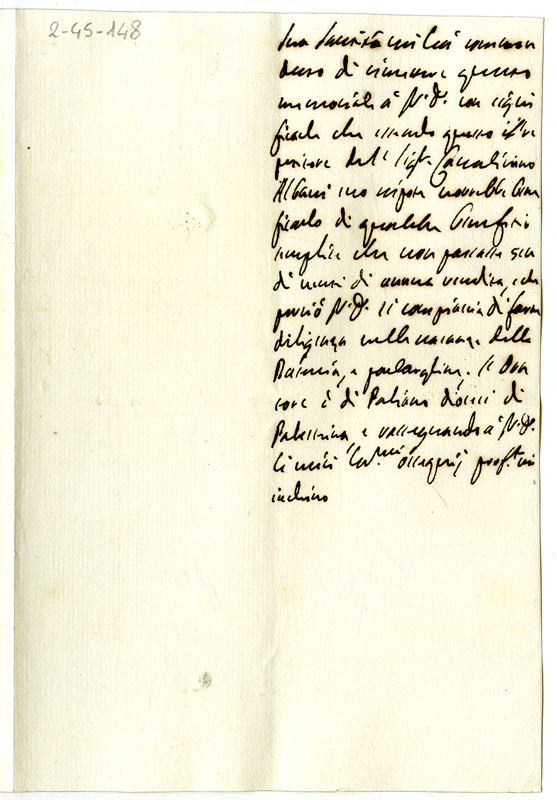 2-45-148
Sua Santità mi hà comman
dato di rimettere questo
memoriale à V.S. con signi
ficarle che essendo questo
dell' Sigr. Cavalierino
Albani suo nipote vorrebbe
ficarlo di qualche Beneficio
semplice che non passasse
di annua rendita, e che
perciò V.S. si compiaccia di farne
diligenza nelle vacanze della
Dataria, e parlargliene. Il
è di Paliano diocesi di
Palestrina, e rassegnando à V.S.
li miei ossequij prof.te mi
inchino